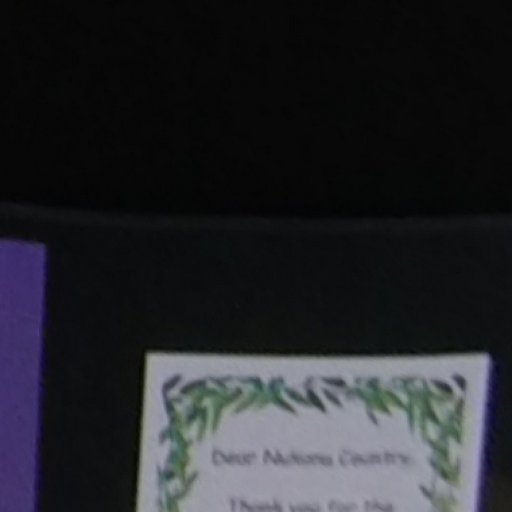 Dear Nukunu Country,
Thank you for the